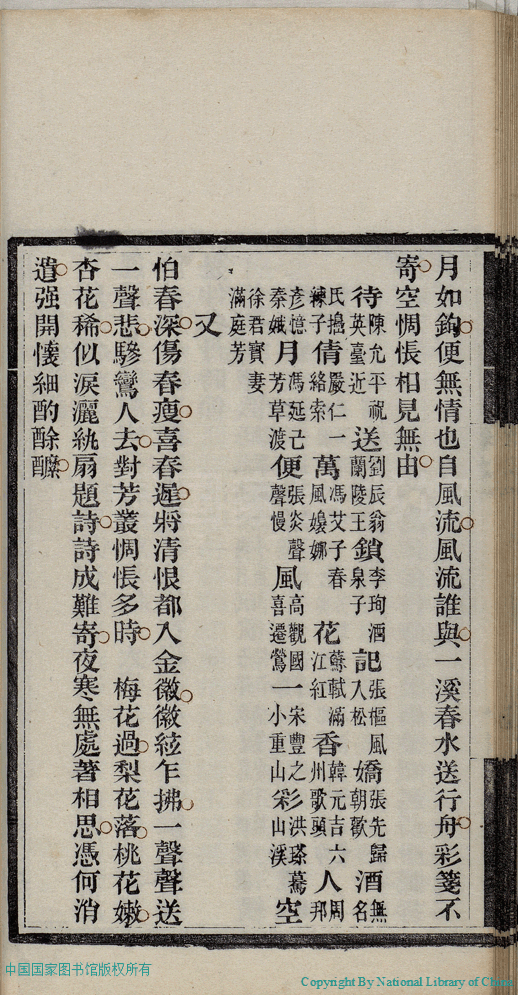 月如鉤便無情也自風流風流誰與一溪春水送行舟彩箋不
寄空惆悵相見無由
待陳允平祝英臺近送劉辰翁蘭陵王鎖李珣酒泉子記張樞風入松嬌張先歸朝歡酒無名
氏搗練子倩嚴仁一絡索萬馮艾子春風嬝娜花蘇軾滿江紅香韓元吉六州歌頭人周邦
彥憶秦娥月馮延巳芳草渡便張炎聲聲慢風高觀國喜遷鶯一宋豐之小重山彩洪瑹驀山溪空
徐君寶妻滿庭芳
又
怕春深傷春瘦喜春遲將清恨都入金徽徽絃乍拂一聲聲送
一聲悲驂鸞人去對芳叢惆悵多時　梅花過梨花落桃花嫩
杏花稀似淚灑紈扇題詩詩成難寄夜寒無處著相思憑何消
遣强開懷細酌酴醾
中国国家图书馆版权所有
Copyright By National Library of China